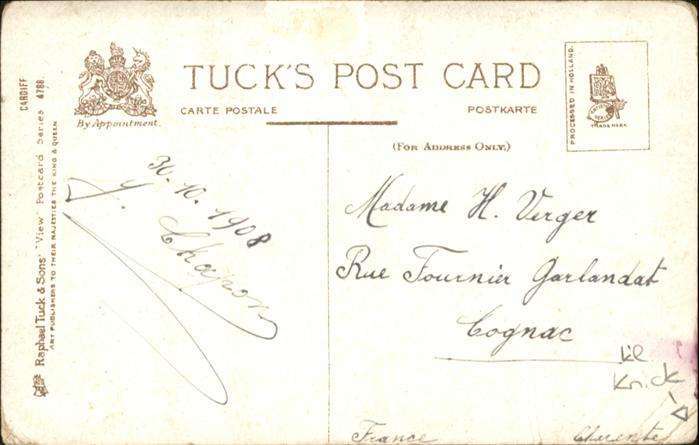 TUCK'S POST CARD
CARTE POSTALE
POSTKARTE
By Appointment.
(FOR ADDRESS ONLY.)
PROCESSED IN HOLLAND.
TRADE MARK
CARDIFF
Raphael Tuck & Sons' "View" Postcard Series 6788.
ART PUBLISHERS TO THEIR MAJESTIES THE KING & QUEEN
30.10.1908
Y. Chapon
Madame H. Verger
Rue Fournier Garlandat
Cognac
kl
Knick
France
Charente